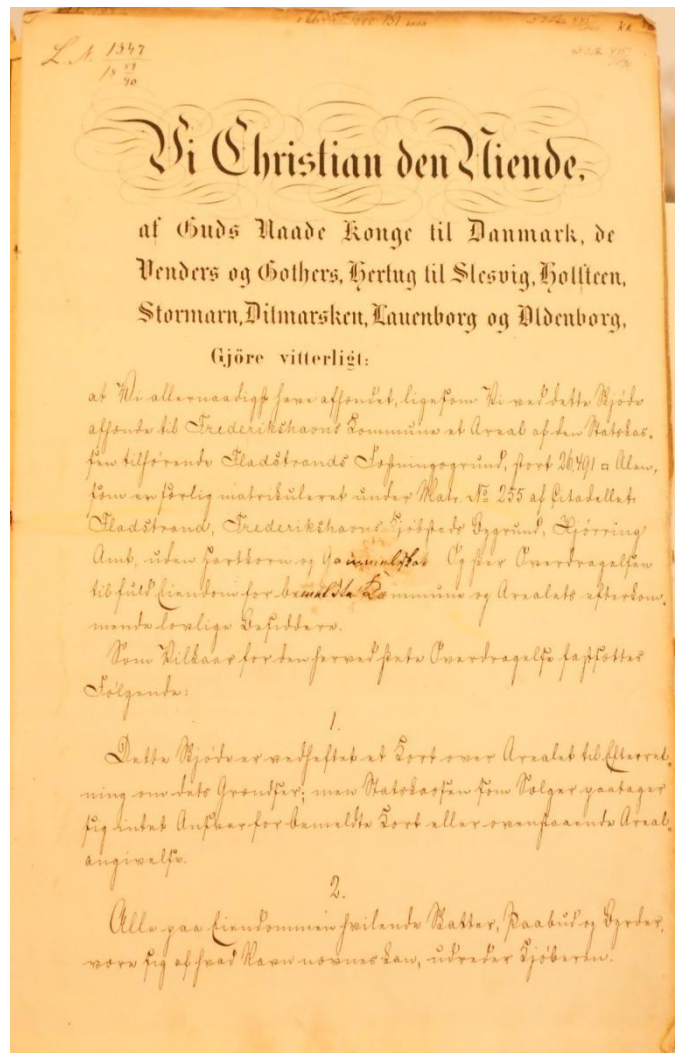 L. N. 1347
Vi Christian den Niende,
af Guds Naade Konge til Danmark, de
Venders og Gothers, Hertug til Slesvig, Holsteen,
Stormarn, Ditmarsken, Lauenborg og Oldenborg,
Gjöre vitterligt:
at Vi allernaadigst have afhændet, ligesom Vi ved dette Skjøde
afhænde til Frederikshavns Kommune et Areal af den Statskas-
sen tilhørende Fladstrands Fæstningsgrund, stort 26,491 □ Alen,
som er særlig matrikuleret under Matr. № 255 af Citadellet
Fladstrand, Frederikshavns Kjøbstads Bygrund, Hjørring
Amt, uden Hartkorn og Gammelskat. Og sker Overdragelsen
til fuld Eiendom for bemeldte Kommune og Arealets efterkom-
mende lovlige Besiddere.
Som Vilkaar for den herved skete Overdragelse fastsættes
Følgende:
1.
Dette Skjøde er vedheftet et Kort over Arealet til Efterret-
ning om dets Grændser; men Statskassen som Sælger paatager
sig intet Ansvar for bemeldte Kort eller ovenstaaende Areal-
angivelse.
2.
Alle paa Eiendommen hvilende Skatter, Paabud og Byrder,
være sig af hvad Navn nævnes kan, udreder Kjøberen.